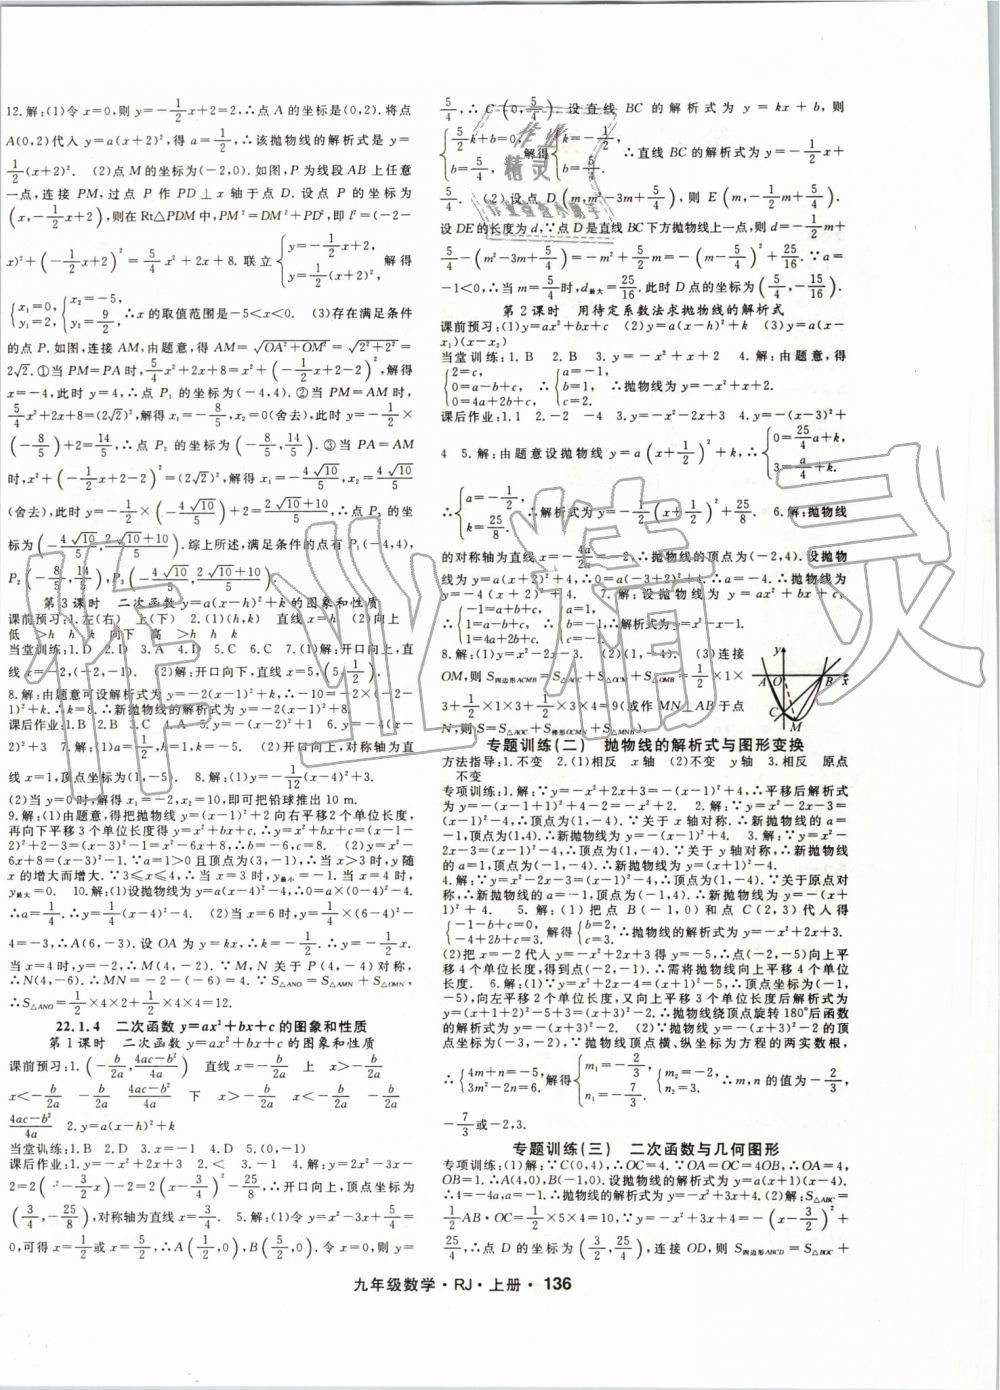 12.解:(1)令 x=0,则 y=-1/2x+2=2,∴点 A 的坐标是(0,2).将点
A(0,2)代入 y=a(x+2)²,得 a=1/2,∴该抛物线的解析式是 y=
1/2(x+2)². (2)点 M 的坐标为(-2,0).如图,P 为线段 AB 上任意
一点,连接 PM,过点 P 作 PD⊥x 轴于点 D.设点 P 的坐标为
(x,-1/2x+2),则在 Rt△PDM 中,PM²=DM²+PD²,即 l²=(-2-
x)²+(-1/2x+2)²=5/4x²+2x+8.联立{y=-1/2x+2, y=1/2(x+2)², 解得
{x₁=0, y₁=2, {x₂=-5, y₂=9/2, ∴x 的取值范围是-5<x<0. (3)存在满足条件
的点 P.如图,连接 AM,由题意,得 AM=√(OA²+OM²)=√(2²+2²)=
2√2.①当 PM=PA 时,5/4x²+2x+8=x²+(-1/2x+2-2)²,解得
x=-4,此时 y=-1/2×(-4)+2=4,∴点 P₁ 的坐标为(-4,4).②当 PM=AM 时,
5/4x²+2x+8=(2√2)²,解得 x₁=-8/5,x₂=0(舍去),此时 y=-1/2×
(-8/5)+2=14/5,∴点 P₂ 的坐标为(-8/5,14/5).③当 PA=AM
时,x²+(-1/2x+2-2)²=(2√2)²,解得 x₁=-4√10/5,x₂=4√10/5
(舍去),此时 y=-1/2×(-4√10/5)+2=(2√10+10)/5,∴点 P₃ 的坐
标为(-4√10/5,(2√10+10)/5).综上所述,满足条件的点有 P₁(-4,4),
P₂(-8/5,14/5),P₃(-4√10/5,(2√10+10)/5).
第 3 课时 二次函数 y=a(x-h)²+k 的图象和性质
课前预习:1.左(右) 上(下) 2.(1)(h,k) 直线 x=h (2)向上
低 >h h k 向下 高 >h h k
当堂训练:1.D 2.D 3.A 4.D 5.C 6.C 7.(1)解:开口向上,直
线 x=-2,(-2,-1). (2)解:开口向下,直线 x=5,(5,
8.解:由题意可设解析式为 y=-2(x-1)²+k,
+k,∴k=8.∴新抛物线的解析式为 y=-2(x-1)²+8.
课后作业:1.B 2.B 3.C 4.A 5.y=-(x-2)²+1 6.y=-4(x-
2)²+3 7.解:(1)a=1/2, (2)开口向上,对称轴为直
线 x=1,顶点坐标为 8.解:(1)y=-1/12(x-4)²+3.
(2)当 y=0时,解得 x₁=-2,x₂=10,即可把铅球推出 10 m.
9.解:(1)由题意,得把抛物线 y=(x-1)²+2 向右平移2 个单位长度,
再向下平移 3 个单位长度得 y=x²+bx+c.∴y=x²+bx+c=(x-1-
2)²+2-3=(x-3)²-1=x²-6x+8.∴b=-6,c=8. (2)∵y=x²-
6x+8=(x-3)²-1.∵a=1>0 且顶点为(3,-1),∴当 x>3 时,y 随
x 的增大而增大.∵3≤x≤4,∴当 x=3 时,y最小=-1.当 x=4 时,
y最大=0. 10.解:(1)设抛物线为 y=a(x-4)²-4,∴0=a(0-4)²-4.
∴a=1/4.∴y=1/4(x-4)²-4. (2)当 x=6 时,y=1/4×(6-4)²-
4=-3,∴A(6,-3).设 OA 为 y=kx,∴k=-1/2.∴y=-1/2x.
当 x=4 时,y=-2,∴M(4,-2).∵M,N 关于 P(4,-4)对称,
∴N(4,-6).∴MN=-2-(-6)=4.∵S△ANO=S△AMN+S△OMN,
∴S△ANO=1/2×4×2+1/2×4×4=12.
22.1.4 二次函数 y=ax²+bx+c 的图象和性质
第 1 课时 二次函数 y=ax²+bx+c 的图象和性质
课前预习:1.(-b/2a,(4ac-b²)/4a) 直线 x=-b/2a 上 x>-b/2a
x<-b/2a -b/2a (4ac-b²)/4a 下 x>-b/2a x<-b/2a -b/2a
(4ac-b²)/4a 2.y=a(x-h)²+k
当堂训练:1.B 2.D 3.x=-1 4.D 5.(0,-1)
课后作业:1.y=-x²+2x+3 2.< 3.-1 4.解:y=2x²-3x-
2=2(x²-3/2x)-2=2(x-3/4)²-25/8,∴开口向上,顶点坐标为
(3/4,-25/8),对称轴为直线 x=3/4. 5.解:(1)令 y=x²-3x+5/4=
0,可得 x=1/2或 x=5/2,∴A(1/2,0),B(5/2,0).令 x=0,则 y=
5/4,∴C(0,5/4).设直线 BC 的解析式为 y=kx+b,则
{5/2k+b=0, b=5/4, 解得{k=-1/2, b=5/4, ∴直线 BC 的解析式为 y=-1/2x+
5/4. (2)设点 D(m,m²-3m+5/4),则 E(m,-1/2m+5/4).
设 DE的长度为 d,∵点 D 是直线 BC 下方抛物线上一点,则 d=-1/2m+
5/4-(m²-3m+5/4)=-m²+5/2m=-(m-5/4)²+25/16.∵a=
-1<0,∴当 m=5/4时,d最大=25/16.此时 D 点的坐标为(5/4,-15/16).
第 2 课时 用待定系数法求抛物线的解析式
课前预习:(1)y=ax²+bx+c (2)y=a(x-h)²+k (3)y=a(x-
x₁)(x-x₂)
当堂训练:1.B 2.B 3.y=-x²+x+2 4.解:由题意,得
{2=c, 0=a-b+c, 0=4a+2b+c, ∴{a=-1, b=1, c=2. ∴抛物线为 y=-x²+x+2.
课后作业:1.1 2.-2 -4 3.y=-x²-2x+3 4.y=-(x-3)²+
4 5.解:由题意设抛物线 y=a(x+1/2)²+k,∴{0=25/4a+k, 3=a/4+k.
∴{a=-1/2, k=25/8. ∴解析式为 y=-1/2(x+1/2)²+25/8. 6.解:抛物线
的对称轴为直线 x=-4a/2a=-2,∴抛物线的顶点为(-2,4).设抛物
线为 y=a(x+2)²+4,∴0=a(-3+2)²+4.∴a=-4.∴抛物线为
y=-4(x+2)²+4. 7.解:设抛物线为 y=ax²+bx+c,
∴{-1=4a-2b+c, -1=a-b+c, ∴解析式为 y=x²
8.解:(1)y=x²-2x-3. (2)(1,-4). (3)连接
OM,则 S四边形ACMB=S△AOC+S△OCM+S△OMB=1/2×1×
3+1/2×1×3+1/2×3×4=9(或作 MN⊥AB 于点
N,则 S=S△AOC+S梯形OCMN+S△MNB).
A O B x y C M
专题训练(二) 抛物线的解析式与图形变换
方法指导:1.不变 2.(1)相反 x轴 (2)不变 y轴 3.相反 原点
不变
专项训练:1.解:∵y=-x²+2x+3=-(x-1)²+4,∴平移后解析式
为 y=-(x-1+1)²+4-2=-x²+2. 2.解:∵y=x²-2x-3=
(x-1)²-4,顶点为(1,-4).∵关于 x 轴对称.∴新抛物线的 a=
-1,顶点为(1,4).∴新抛物线为 y=-(x-1)²+4. 3.解:∵y=
x²-2x-3=(x-1)²-4,∴顶点为(1,-4).∵关于 y 轴对称,∴新抛物线
的 a=1,顶点为(-1,-4).∴新抛物线为 y=(x+1)²-4.
4.解:∵y=x²-2x-3=(x-1)²-4,∴顶点为(1,-4).∵关于原点对
称,∴新抛物线的 a=-1,顶点为(-1,4).∴新抛物线为 y=-(x+
1)²+4. 5.解:(1)把点 B(-1,0)和点 C(2,3)代入得
{-1-b+c=0, -4+2b+c=3, 解得{b=2, c=3. ∴抛物线的解析式为 y=-x²+2x+3.
(2)把 x=-2 代入 y=-x²+2x+3 得 y=-5,∴点(-2,-5)向上平
移 4 个单位长度,得到点(-2,-1).∴需将抛物线向上平移 4 个单位
长度. 6.解:(1)∵y=x²-4x+5=(x-2)²+1,
∴向左平移 5 个单位长度,又向上平移 3 个单位长度为 y=
(x+1+2)²-5+3=(x+3)²-2.∴抛物线绕顶点旋转 180°后函数
的解析式为 y=-(x+3)²-2. (2)∵抛物线 y=-(x+3)²-2 的顶
点坐标为(-3,-2),∵抛物线顶点横、纵坐标为方程的两实数根,
∴{4m+n=-5, 3m²-2n=6. 解得{m₁=-2/3, n₁=-7/3, ∴m,n 的值为-2/3,
-7/3或-2,3.
专题训练(三) 二次函数与几何图形
专项训练:(1)解:∵C(0,4),∴OC=4.∵OA=OC=4OB,∴OA=4,
OB=1.∴A(4,0),B(-1,0).设抛物线的解析式为 y=a(x+1)(x-4).
∴4=-4a,a=-1.∴抛物线的解析式为 y=-x²+3x+4.(2)解:S△ABC=
1/2AB·OC=1/2×5×4=10,∵y=-x²+3x+4=-(x-3/2)²+
25/4,∴点 D 的坐标为(3/2,25/4),连接 OD,则 S四边形ABCD=S△BOC+
九年级数学·RJ·上册· 136
作业精灵